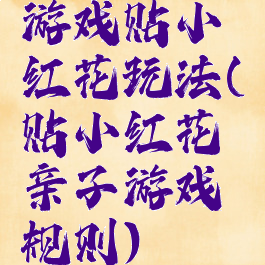 游戏贴小
红花玩法(
贴小红花
亲子游戏
规则)